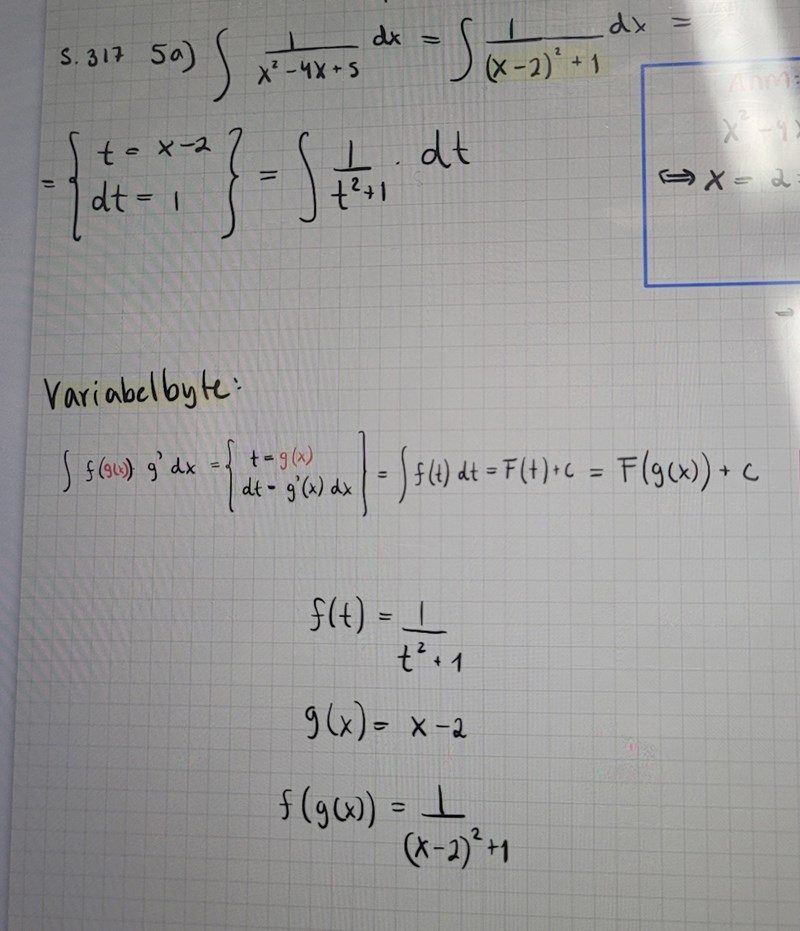 S. 317 5a) ∫ 1/(x² - 4x + 5) dx = ∫ 1/((x-2)² + 1) dx =
= { t = x-2
dt = 1 } = ∫ 1/(t²+1) · dt
x² - 4x
⟺ x = 2
Variabelbyte:
∫ f(g(x)) g' dx = { t = g(x)
dt = g'(x) dx } = ∫ f(t) dt = F(t) + C = F(g(x)) + C
f(t) = 1/(t² + 1)
g(x) = x - 2
f(g(x)) = 1/((x-2)² + 1)